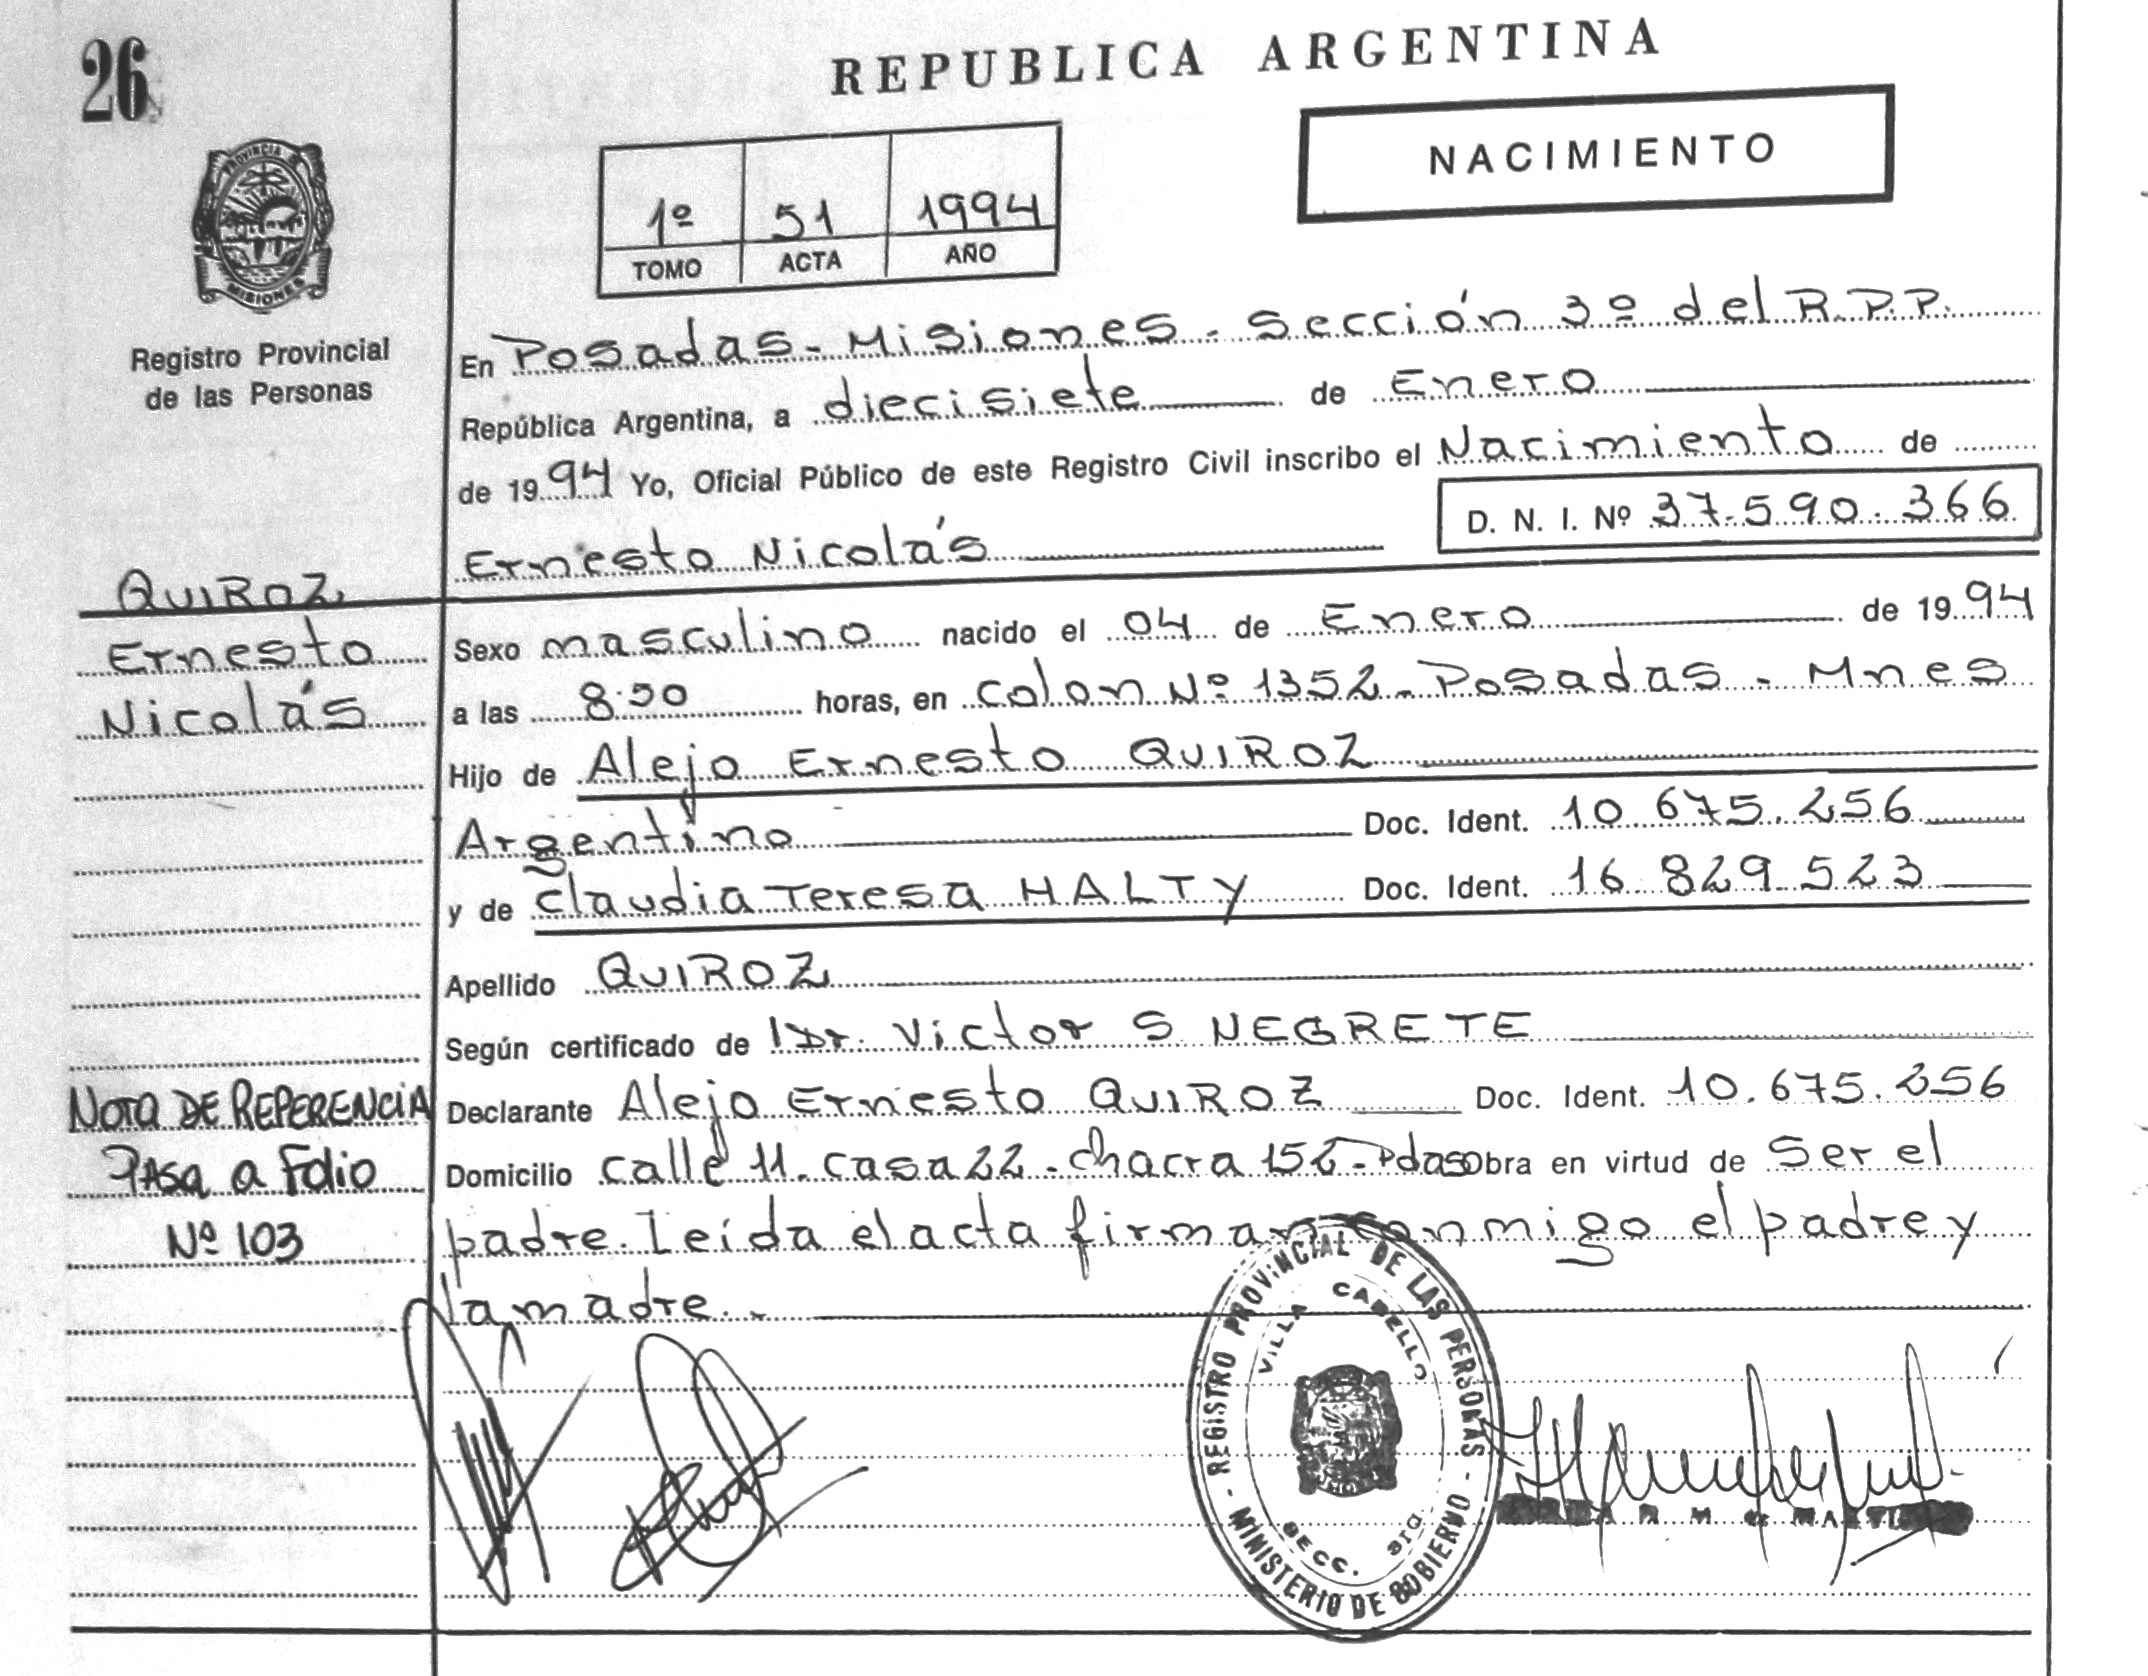 26
REPUBLICA ARGENTINA
NACIMIENTO
PROVINCIA DE
MISIONES
1º 51 1994
TOMO ACTA AÑO
Registro Provincial
de las Personas
En Posadas - Misiones - Sección 3º del R.P.P.
República Argentina, a diecisiete de Enero
de 1994 Yo, Oficial Público de este Registro Civil inscribo el Nacimiento de
D. N. I. Nº 37.590.366
Ernesto Nicolás
QUIROZ
Ernesto
Nicolás
Sexo masculino nacido el 04 de Enero de 1994
a las horas, en Colon Nº 1352 - Posadas - Mnes
Hijo de Alejo Ernesto QUIROZ
Argentino Doc. Ident. 10 675.256
y de Claudia Teresa HALTY Doc. Ident. 16 829 523
Apellido QUIROZ
Según certificado de Dr. Victor S NEGRETE
Declarante Alejo Ernesto QUIROZ Doc. Ident. 10.675.256
Domicilio calle 11 - casa 22 - chacra 152 - Pdas obra en virtud de Ser el
padre. Leída el acta firman conmigo el padre y
la madre.
NOTA DE REFERENCIA
PASA A Folio
Nº 103
REGISTRO PROVINCIAL DE LAS PERSONAS
VILLA CABELLO
SECC. 3ra
MINISTERIO DE GOBIERNO